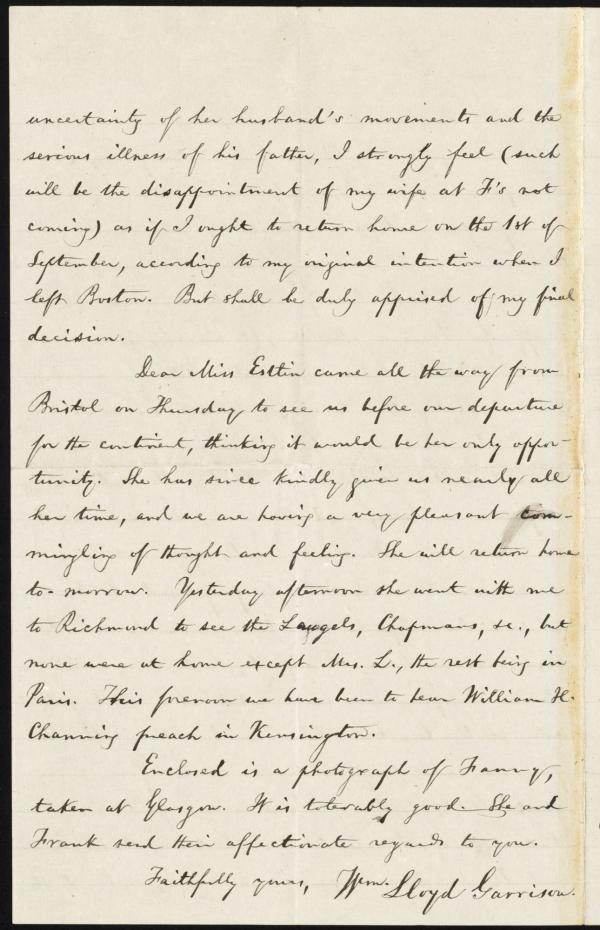 uncertainty of her husband's movements and the
serious illness of his father, I strongly feel (such
will be the disappointment of my wife at F's not
coming) as if I ought to return home on the 1st of
September, according to my original intention when I
left Boston. But shall be duly apprised of my final
decision.
Dear Miss Estlin came all the way from
Bristol on Thursday to see us before our departure
for the continent, thinking it would be her only oppor-
tunity. She has since kindly given us nearly all
her time, and we are having a very pleasant com-
mingling of thought and feeling. She will return home
to-morrow. Yesterday afternoon she went with me
to Richmond to see the Laugels, Chapmans, &c., but
none were at home except Mrs. L., the rest being in
Paris. This forenoon we have been to hear William H.
Channing preach in Kensington.
Enclosed is a photograph of Fanny,
taken at Glasgow. It is tolerably good. She and
Frank send their affectionate regards to you.
Faithfully yours, Wm. Lloyd Garrison.